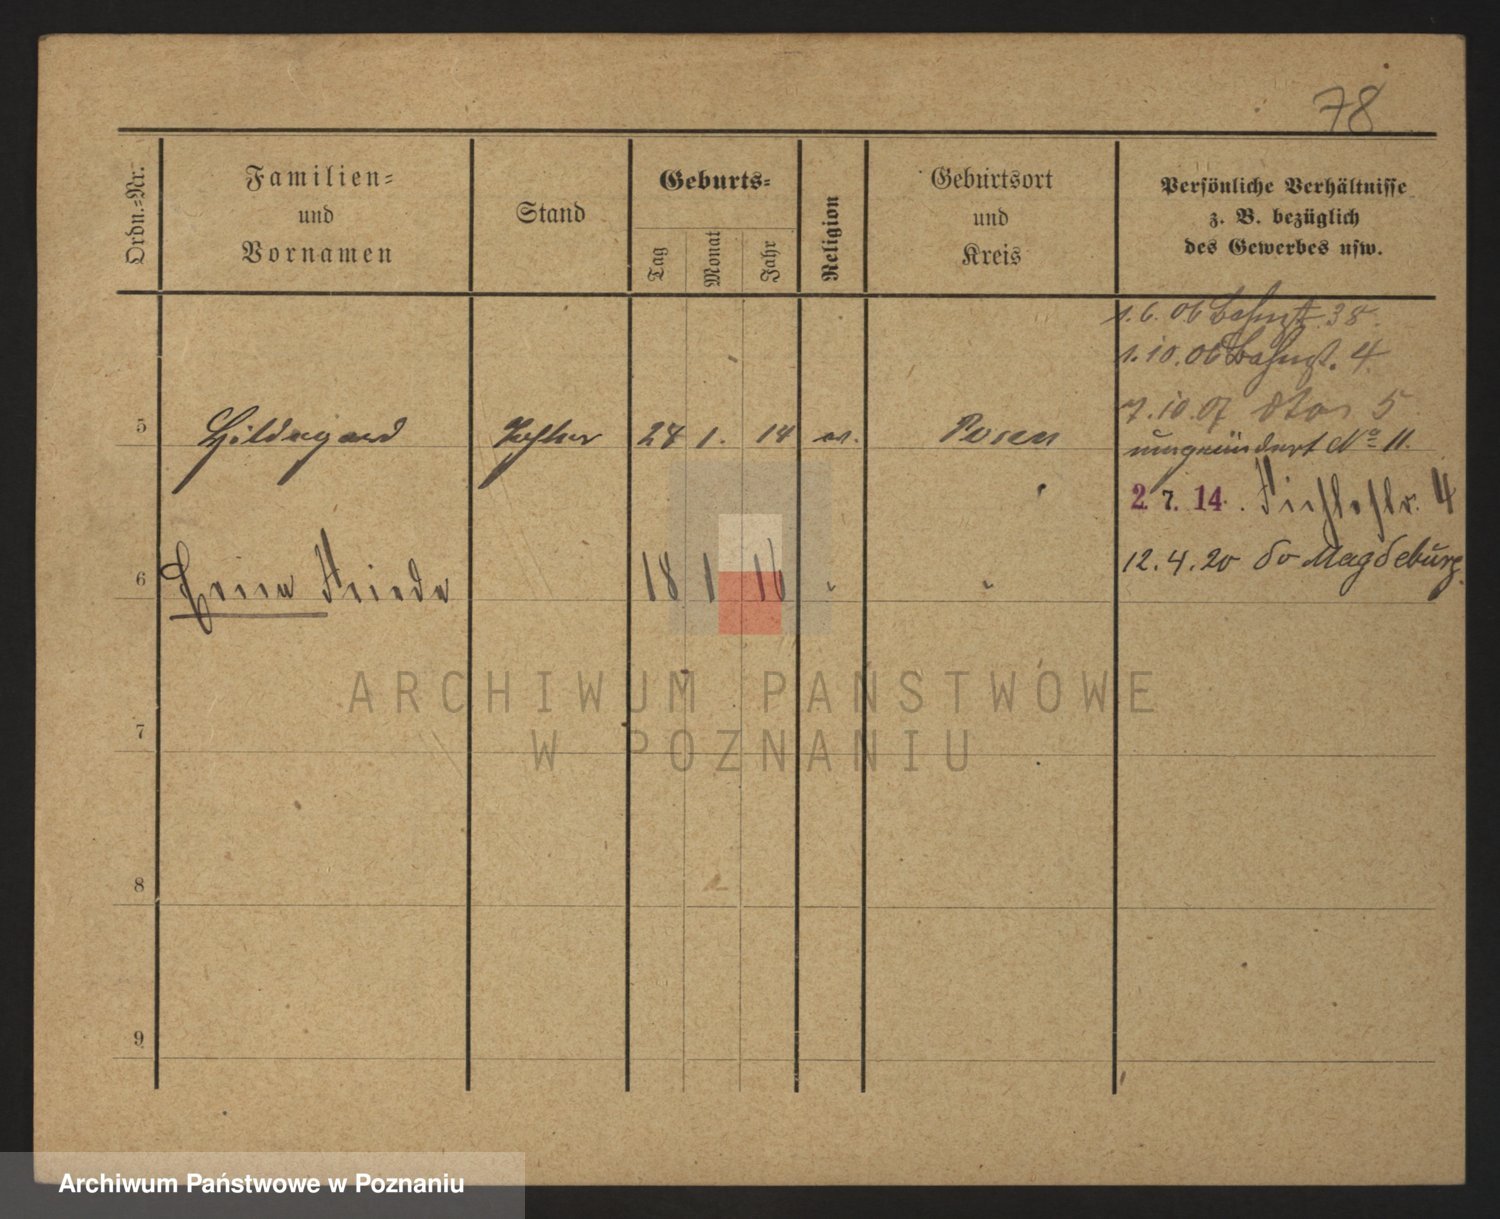 78
Ordn.-Nr.
Familien-
und
Vornamen
Stand
Geburts-
Tag
Monat
Jahr
Religion
Geburtsort
und
Kreis
Persönliche Verhältnisse
z. B. bezüglich
des Gewerbes usw.
1.6.06 Bahnst. 38.
1.10.06 Bahnst. 4.
7.10.07 5
5 Hildegard Tochter 24 1. 14 ev. Posen
umgeändert No 11.
2. 7. 14. Fichtestr. 4
12.4.20 do Magdeburg.
6 Erna Frieda 18 1 16 " "
7
8
9
ARCHIWUM PAŃSTWOWE
W POZNANIU
Archiwum Państwowe w Poznaniu